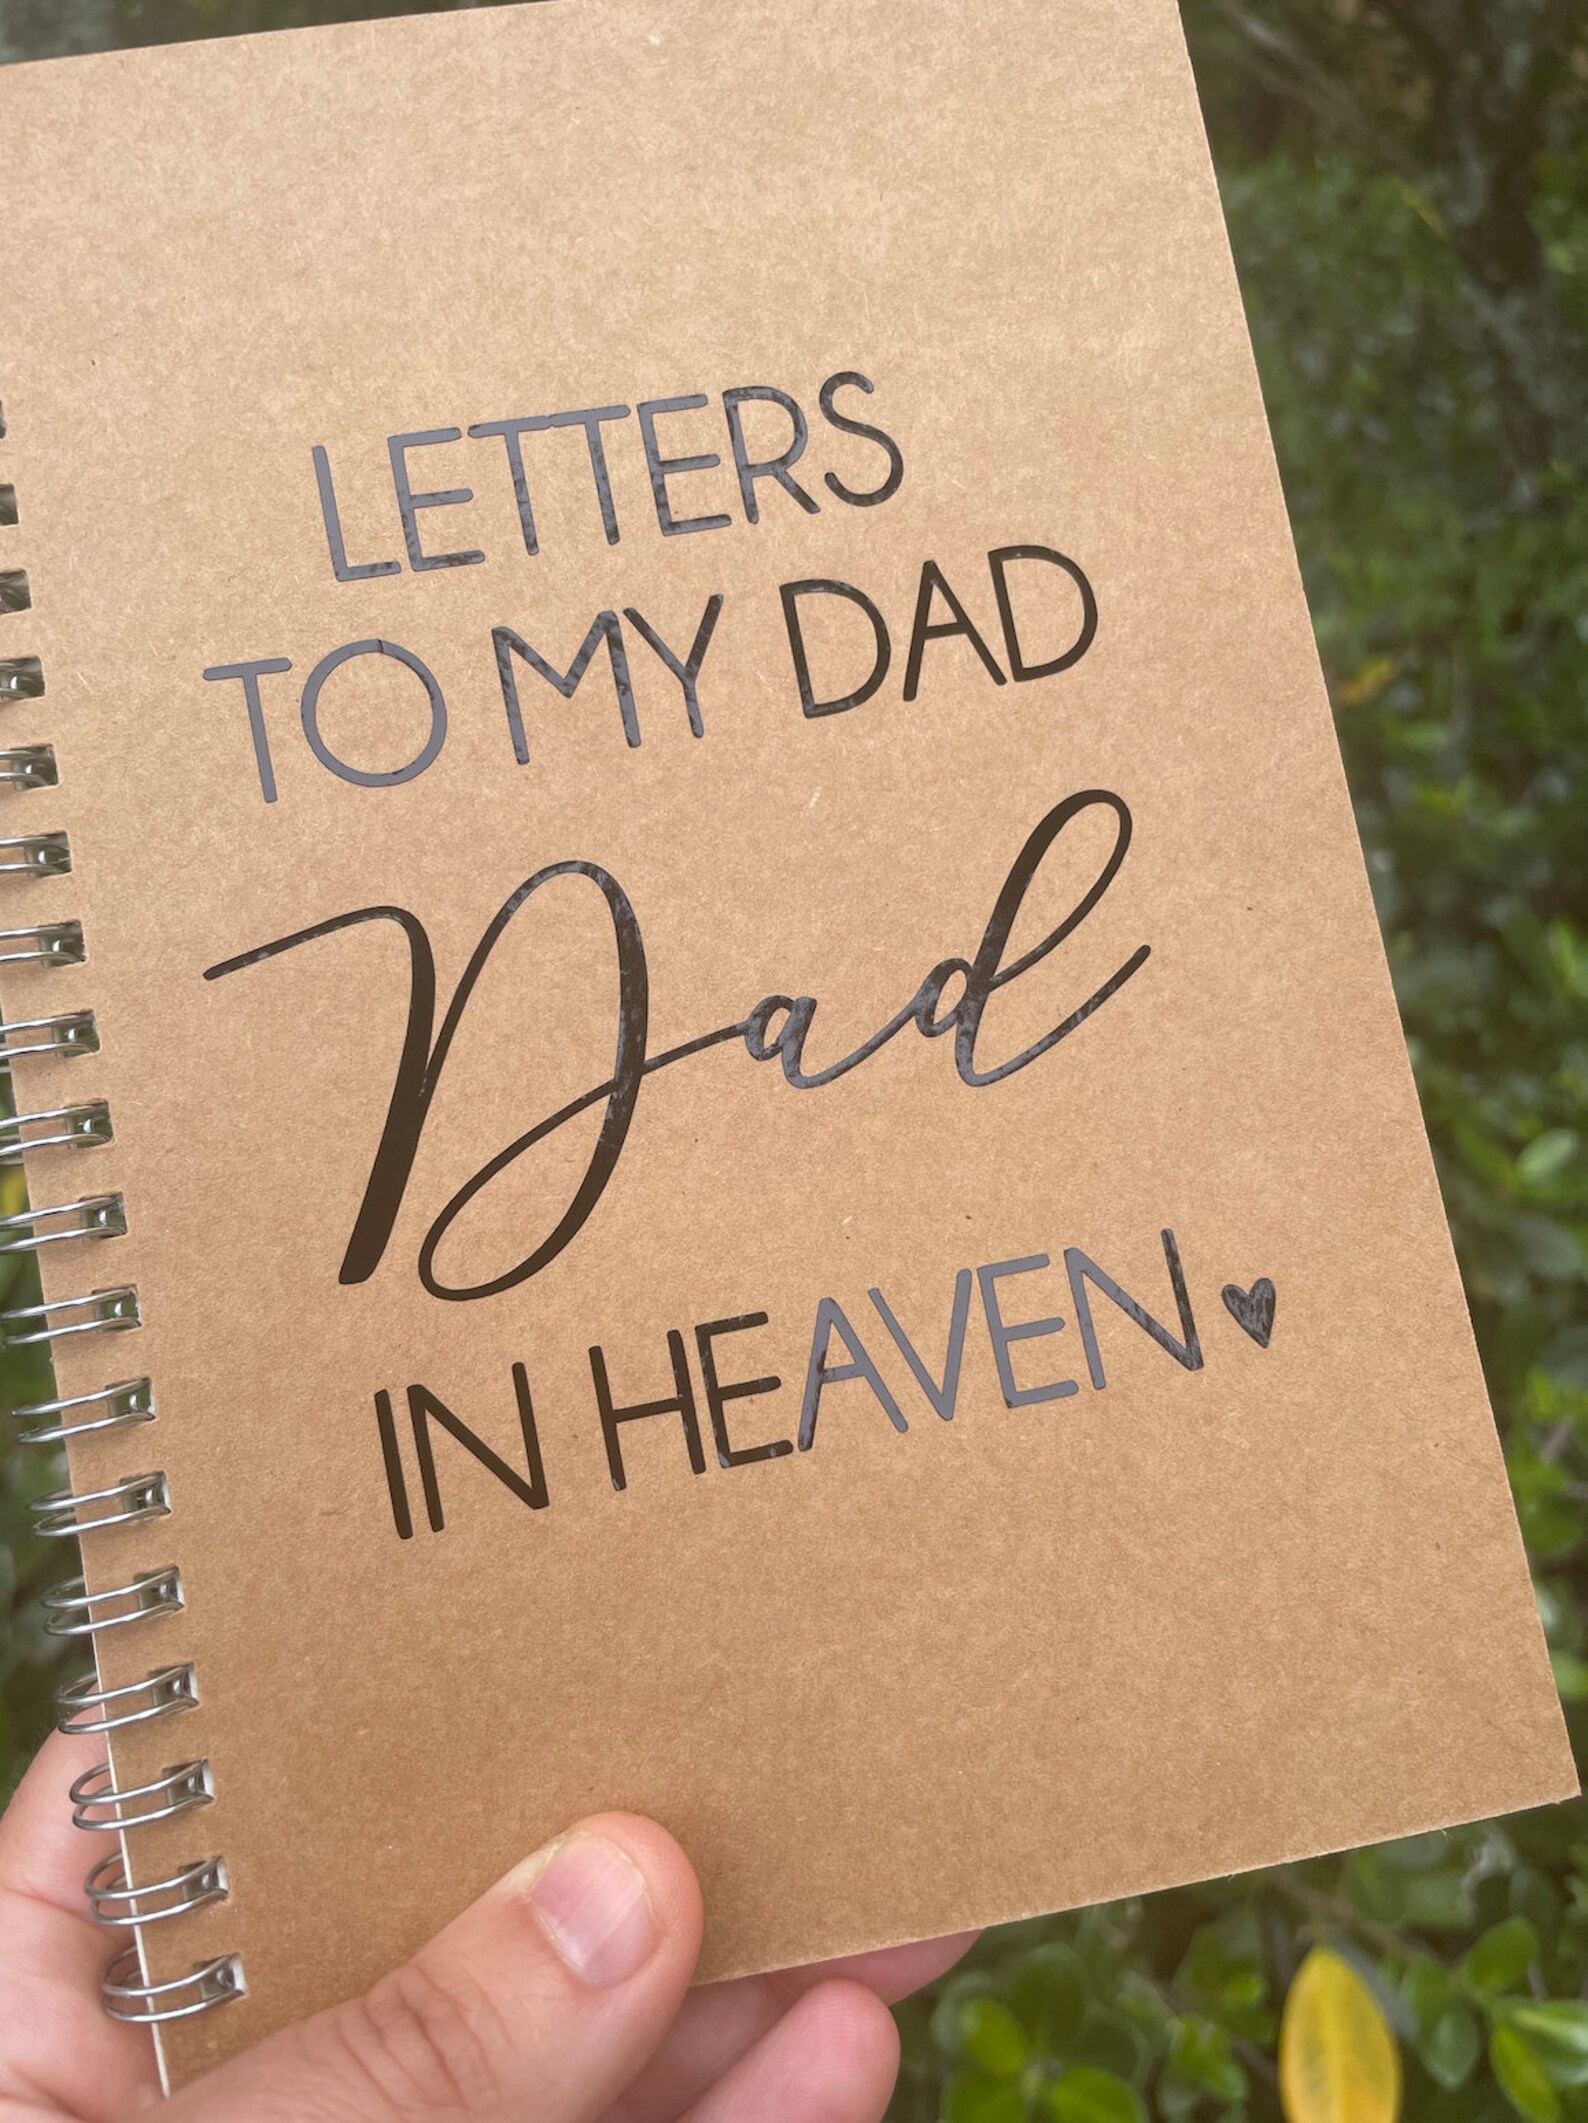 LETTERS
TO MY DAD
Dad
IN HEAVEN